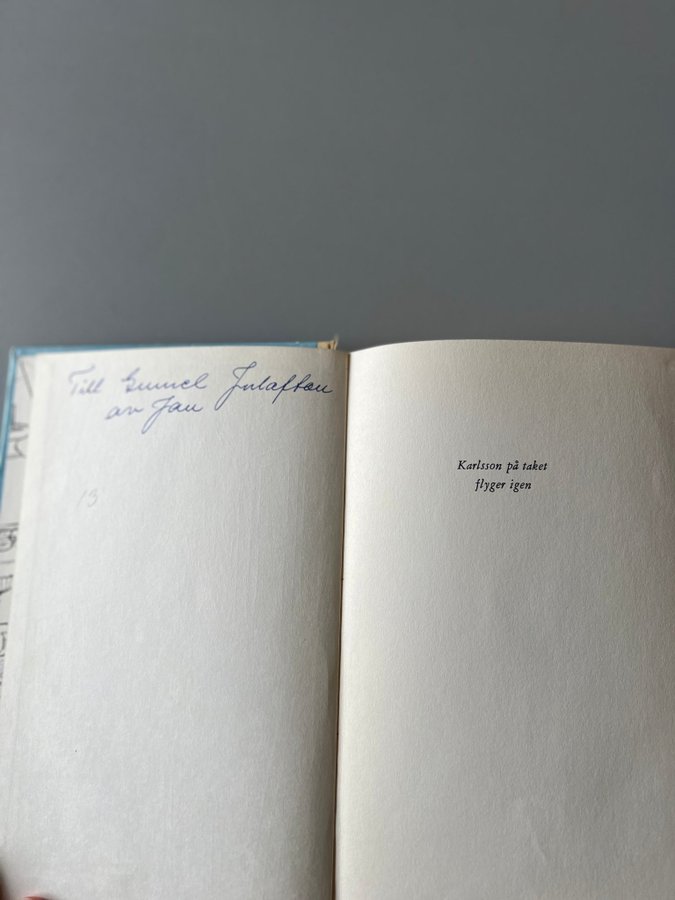 Till Gunnel Julafton
av Jan
13
Karlsson på taket
flyger igen